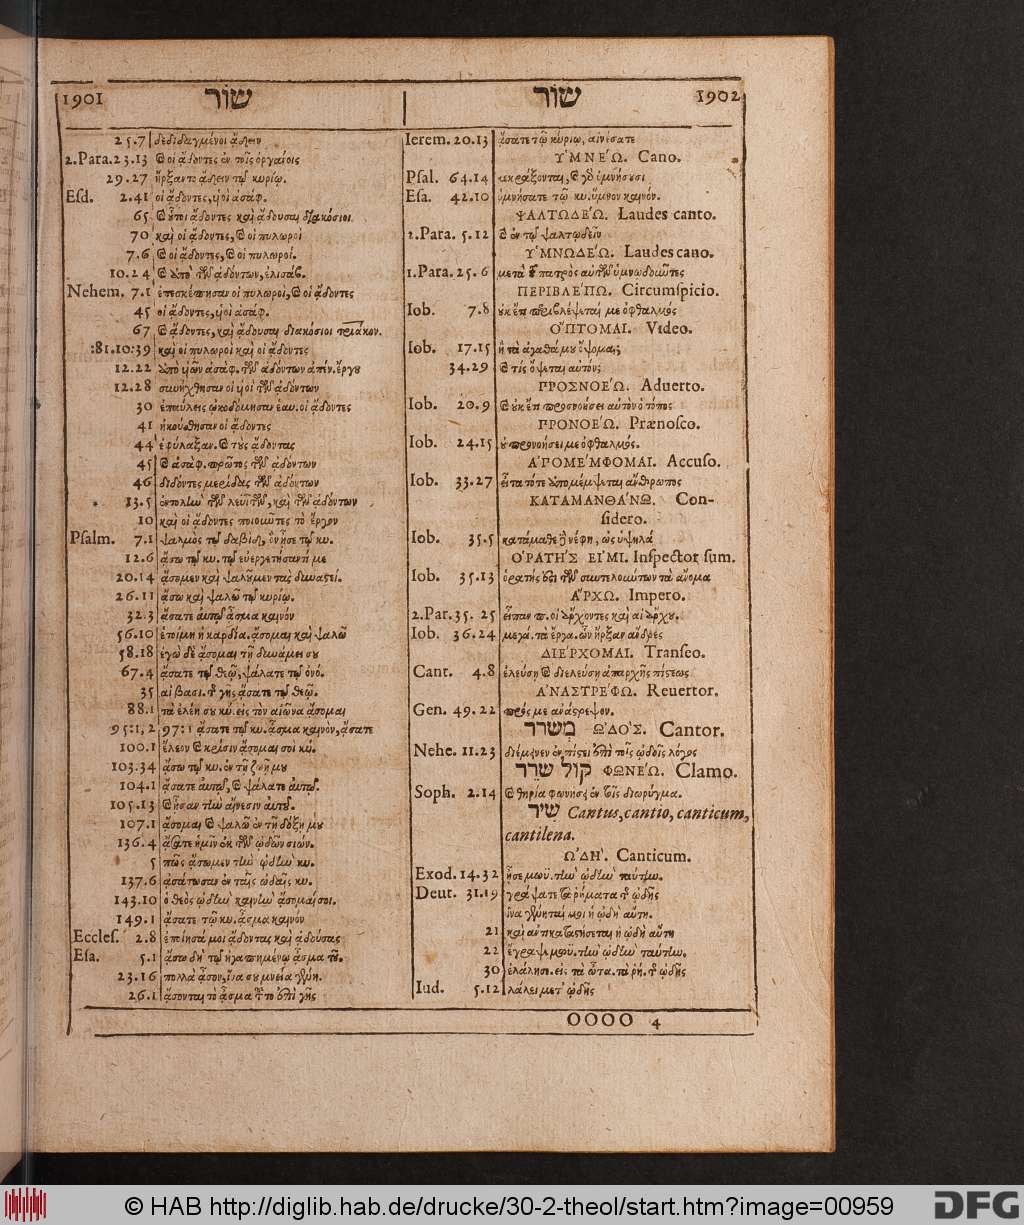 1901 שׁוּר
25.7 δεδιδαγμένοι ᾄδειν
2.Para.23.13 ϗ οἱ ᾄδοντες ἐν τοῖς ὀργάνοις
29.27 ἤρξαντο ᾄδειν τῷ κυρίῳ.
Esd. 2.41 οἱ ᾄδοντες, υἱοὶ ἀσάφ.
65 ᾄδοντες καὶ ᾄδουσαι διακόσιοι
70 καὶ οἱ ᾄδοντες, ϗ οἱ πυλωροὶ
7.6 ϗ οἱ ᾄδοντες, ϗ οἱ πυλωροί.
10.24 ϗ ἀπὸ τῶν ᾀδόντων, ἐλισάβ.
Nehem. 7.1 ἐπεσκέπησαν οἱ πυλωροὶ, ϗ οἱ ᾄδοντες
45 οἱ ᾄδοντες, υἱοὶ ἀσάφ.
67 ϗ ᾄδοντες, καὶ ᾄδουσαι διακόσιοι τριάκον.
:81.10:39 καὶ οἱ πυλωροὶ καὶ οἱ ᾄδοντες
12.22 ἀπὸ υἱῶν ἀσάφ. τῶν ᾀδόντων ἀπέν. ἔργου
12.28 συνήχθησαν οἱ υἱοὶ τῶν ᾀδόντων
30 ἐπαύλεις ᾠκοδόμησαν ἑαυ. οἱ ᾄδοντες
41 ἠκούσθησαν οἱ ᾄδοντες
44 ἐφύλαξαν. ϗ τοὺς ᾄδοντας
45 ϗ ἀσάφ. πρῶτος τῶν ᾀδόντων
46 διδόντες μερίδας τῶν ᾀδόντων
13.5 ἐντολὴν τῶν λευϊτῶν, καὶ τῶν ᾀδόντων
10 καὶ οἱ ᾄδοντες ποιοῦντες τὸ ἔργον
Psalm. 7.1 ψαλμὸς τῷ δαβὶδ, ὃν ᾖσε τῷ κυ.
12.6 ᾄσω τῷ κυ. τῷ εὐεργετήσαντί με
20.14 ᾄσομεν καὶ ψαλοῦμεν τὰς δυναστεί.
26.11 ᾄσω καὶ ψαλῶ τῷ κυρίῳ.
32.3 ᾄσατε αὐτῷ ᾆσμα καινόν
56.10 ἑτοίμη ἡ καρδία. ᾄσομαι καὶ ψαλῶ
58.18 ἐγὼ δὲ ᾄσομαι τῇ δυνάμει σου
67.4 ᾄσατε τῷ θεῷ, ψάλατε τῷ ὀνό.
35 αἱ βασι. τῆς γῆς ᾄσατε τῷ θεῷ.
88.1 τὰ ἐλέη σου κύ. εἰς τὸν αἰῶνα ᾄσομαι
95:1,2 97:1 ᾄσατε τῷ κυ. ᾆσμα καινὸν, ᾄσατε
100.1 ἔλεον ϗ κρίσιν ᾄσομαί σοι κύ.
103.34 ᾄσω τῷ κυ. ἐν τῇ ζωῇ μου
104.1 ᾄσατε αὐτῷ, ϗ ψάλατε αὐτῷ.
105.13 ϗ ᾖσαν τὴν αἴνεσιν αὐτοῦ.
107.1 ᾄσομαι ϗ ψαλῶ ἐν τῇ δόξῃ μου
136.4 ᾄσατε ἡμῖν ἐκ τῶν ᾠδῶν σιών.
5 πῶς ᾄσωμεν τὴν ᾠδὴν κυ.
137.6 ᾀσάτωσαν ἐν ταῖς ᾠδαῖς κυ.
143.10 ὁ θεὸς ᾠδὴν καινὴν ᾄσομαί σοι.
149.1 ᾄσατε τῷ κυ. ᾆσμα καινόν
Eccles. 2.8 ἐποίησά μοι ᾄδοντας καὶ ᾀδούσας
Esa. 5.1 ᾄσω δὴ τῷ ἠγαπημένῳ ᾆσμα
23.16 πολλὰ ᾆσον, ἵνα σου μνεία γένη.
26.1 ᾄσονται τὸ ᾆσμα τοῦτο ἐπὶ γῆς
שׁוּר 1902
Ierem. 20.13 ᾄσατε τῷ κυρίῳ, αἰνέσατε
ὙΜΝΕΏ. Cano.
Psal. 64.14 κεκράξονται, ϗ γὸ ὑμνήσουσι
Esa. 42.10 ὑμνήσατε τῷ κυ. ὕμνον καινόν.
ΨΑΛΤΩΔΕΏ. Laudes canto.
2.Para. 5.12 ϗ ἐν τῷ ψαλτῳδεῖν
ὙΜΝΩΔΕΏ. Laudes cano.
1.Para.25.6 μετὰ τοῦ πατρὸς αὐτῶν ὑμνῳδοῦντες
ΠΕΡΙΒΛΕΠΩ. Circumspicio.
Iob. 7.8 οὐκ ἔτι περιβλέψεταί με ὀφθαλμός
ὌΠΤΟΜΑΙ. Video.
Iob. 17.15 ἢ τὰ ἀγαθά μου ὄψομαι;
34.29 ϗ τίς ὄψεται αὐτόν;
ΠΡΟΣΝΟΕΏ. Aduerto.
Iob. 20.9 ϗ οὐκ ἔτι προσνοήσει αὐτὸν ὁ τόπος
ΠΡΟΝΟΕΏ. Prænosco.
Iob. 24.15 οὐ προνοήσει με ὀφθαλμός.
ἈΠΟΜΕΜΦΟΜΑΙ. Accuso.
Iob. 33.27 εἶτα τότε ἀπομέμψεται ἄνθρωπος
ΚΑΤΑΜΑΝΘΆΝΩ. Con-
sidero.
Iob. 35.5 κατάμαθε νέφη, ὡς ὑψηλά
ὉΡΑΤΉΣ ΕἸΜΙ. Inspector sum.
Iob. 35.13 ὁρατής ἐστι τῶν συντελούντων τὰ ἄνομα
ἌΡΧΩ. Impero.
2.Par.35.25 εἶπαν π. οἱ ἄρχοντες καὶ αἱ ἄρχου.
Iob. 36.24 μεγά. τὰ ἔργα. ὧν ἦρξαν ἄνδρες
ΔΙΕΡΧΟΜΑΙ. Transeo.
Cant. 4.8 ἐλεύσῃ ϗ διελεύσῃ ἀπ' ἀρχῆς πίστεως
ἈΝΑΣΤΡΕΦΩ. Reuertor.
Gen. 49.22 πρός με ἀνάστρεψον.
מְשֹׁרֵר ΩἸΔΟΣ. Cantor.
Nehe. 11.23 διέμενεν ἐν πίστει ἐπὶ τοῖς ᾠδοῖς λόγος
קוֹל שֹׁרֵר ΦΩΝΕΏ. Clamo.
Soph. 2.14 ϗ θηρία φωνήσει ἐν τοῖς διορύγμα.
שִׁיר Cantus, cantio, canticum,
cantilena.
ΩἸΔΉ. Canticum.
Exod.14.32 ᾖσε μωϋ. τὴν ᾠδὴν ταύτην.
Deut. 31.19 γράψατε τὰ ῥήματα τῆς ᾠδῆς
ἵνα γένηταί μοι ἡ ᾠδὴ αὕτη.
21 καὶ ἀντικαταστήσεται ἡ ᾠδὴ αὕτη
22 ἔγραψε μωϋ. τὴν ᾠδὴν ταύτην.
30 ἐλάλησε. εἰς τὰ ὦτα. τὰ ῥή. τῆς ᾠδῆς
Iud. 5.12 λάλει μετ' ᾠδῆς
OOOO 4
© HAB http://diglib.hab.de/drucke/30-2-theol/start.htm?image=00959
DFG